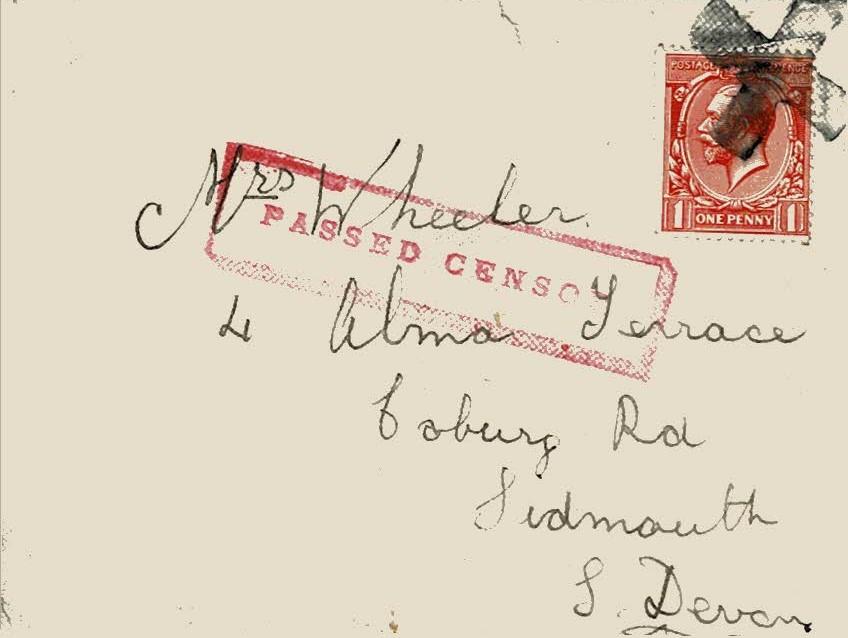 POSTAGE REVENUE
1 ONE PENNY 1
Mrs Wheeler.
PASSED CENSO
4 Alma Terrace
Coburg Rd
Sidmouth
S. Devon